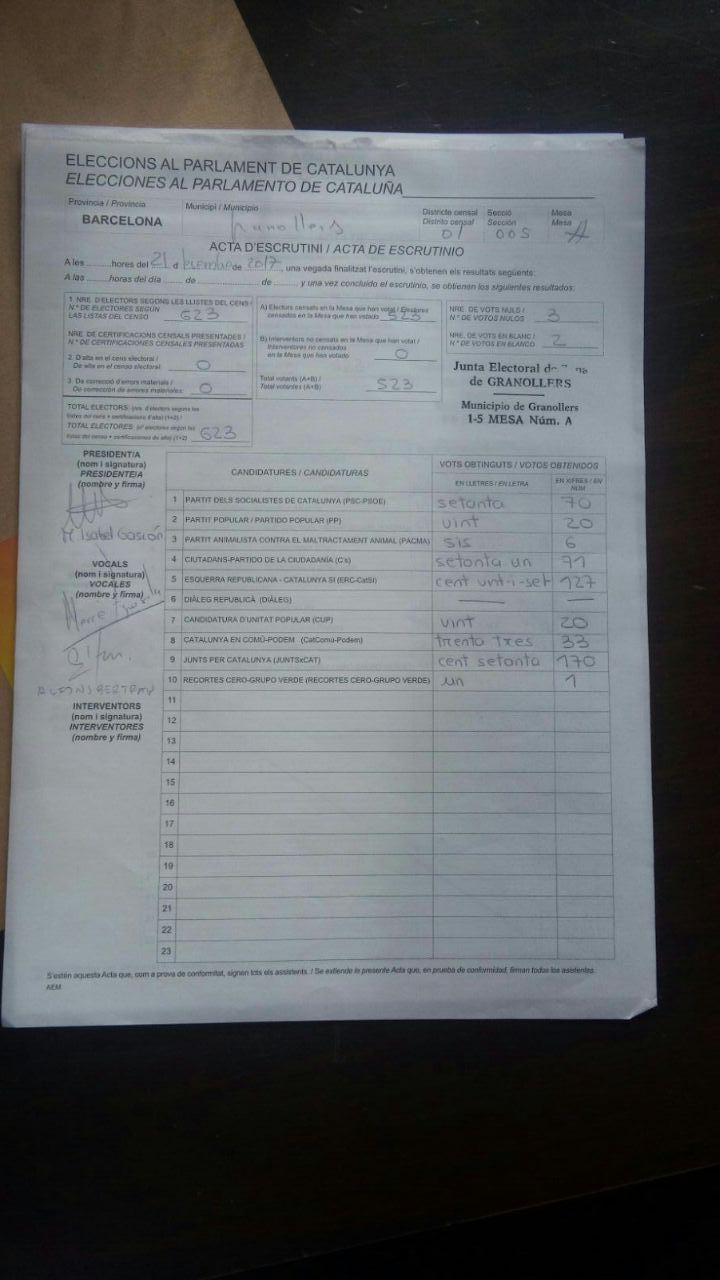 ELECCIONS AL PARLAMENT DE CATALUNYA
ELECCIONES AL PARLAMENTO DE CATALUÑA
Província / Provincia
BARCELONA
Municipi / Municipio
Granollers
Districte censal
Distrito censal
01
Secció
Sección
005
Mesa
Mesa
A
ACTA D'ESCRUTINI / ACTA DE ESCRUTINIO
A les ..........hores del 21 d desembre de 2017, una vegada finalitzat l'escrutini, s'obtenen els resultats següents:
A las .........horas del día ....... de .................... de ......... y una vez concluido el escrutinio, se obtienen los siguientes resultados:
1. NRE. D'ELECTORS SEGONS LES LLISTES DEL CENS /
N.º DE ELECTORES SEGÚN
LAS LISTAS DEL CENSO 623
NRE. DE CERTIFICACIONS CENSALS PRESENTADES /
N.º DE CERTIFICACIONES CENSALES PRESENTADAS
2. D'alta en el cens electoral /
De alta en el censo electoral: 0
3. De correcció d'errors materials /
De corrección de errores materiales: 0
TOTAL ELECTORS: (nre. d'electors segons les
llistes del cens + certificacions d'alta) (1+2) /
TOTAL ELECTORES: (nº electores según las
listas del censo + certificaciones de alta) (1+2) 623
A) Electors censats en la Mesa que han votat / Electores
censados en la Mesa que han votado 523
B) Interventors no censats en la Mesa que han votat /
Interventores no censados
en la Mesa que han votado 0
Total votants (A+B) /
Total votantes (A+B) 523
NRE. DE VOTS NULS /
N.º DE VOTOS NULOS 3
NRE. DE VOTS EN BLANC /
N.º DE VOTOS EN BLANCO 2
Junta Electoral de
de GRANOLLERS
Municipio de Granollers
1-5 MESA Núm. A
PRESIDENT/A
(nom i signatura)
PRESIDENTE/A
(nombre y firma)
M Isabel Gascón
VOCALS
(nom i signatura)
VOCALES
(nombre y firma)
INTERVENTORS
(nom i signatura)
INTERVENTORES
(nombre y firma)
CANDIDATURES / CANDIDATURAS
VOTS OBTINGUTS / VOTOS OBTENIDOS
EN LLETRES / EN LETRA
EN XIFRES / EN NÚM
1 PARTIT DELS SOCIALISTES DE CATALUNYA (PSC-PSOE) setanta 70
2 PARTIT POPULAR / PARTIDO POPULAR (PP) vint 20
3 PARTIT ANIMALISTA CONTRA EL MALTRACTAMENT ANIMAL (PACMA) sis 6
4 CIUTADANS-PARTIDO DE LA CIUDADANÍA (C's) setanta un 71
5 ESQUERRA REPUBLICANA - CATALUNYA SÍ (ERC-CatSí) cent vint-i-set 127
6 DIÀLEG REPUBLICÀ (DIÀLEG) — —
7 CANDIDATURA D'UNITAT POPULAR (CUP) vint 20
8 CATALUNYA EN COMÚ-PODEM (CatComú-Podem) trenta tres 33
9 JUNTS PER CATALUNYA (JUNTSxCAT) cent setanta 170
10 RECORTES CERO-GRUPO VERDE (RECORTES CERO-GRUPO VERDE) un 1
11
12
13
14
15
16
17
18
19
20
21
22
23
S'estén aquesta Acta que, com a prova de conformitat, signen tots els assistents. / Se extiende la presente Acta que, en prueba de conformidad, firman todos los asistentes.
AEM